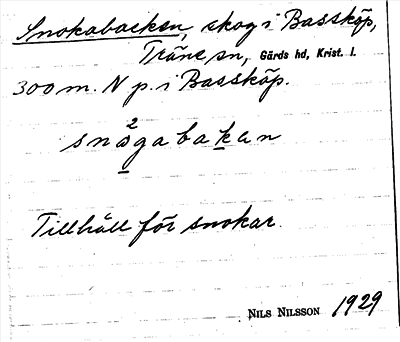 Snokabacken, skog i Bassköp,
Träne sn, Gärds hd, Krist. l.
300 m. N p. i Bassköp.
2
snogabaken
Tillhåll för snokar.
NILS NILSSON 1929